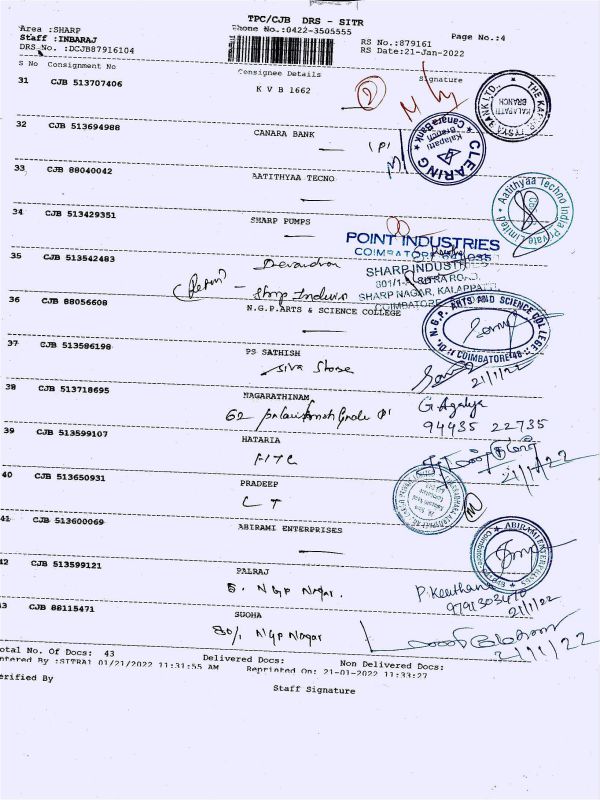 TPC/CJB DRS - SITR
Area :SHARP
Phone No.:0422-3505555
Page No.:4
Staff :INBARAJ
RS No.:879161
DRS-No. :DCJB87916104
RS Date:21-Jan-2022
S No Consignment No
Consignee Details
Signature
31 CJB 513707406
K V B 1662
2
THE KA
BANK LTD.,
KALAPATTI
BRANCH
32 CJB 513694988
CANARA BANK
CLEARING
Canara Bank
Kalapatti
Branch
33 CJB 88040042
AATITHYAA TECNO
Aatithyaa Techno India Private Limited
34 CJB 513429351
SHARP PUMPS
POINT INDUSTRIES
COIMBATORE 641035
35 CJB 513542483
Devandra
SHARP INDUST
SHARP NAGAR, KALAPPATTI
COIMBATORE
Sharp
36 CJB 88056608
N.G.P.ARTS & SCIENCE COLLEGE
Dr. N.G.P. ARTS AND SCIENCE COLLEGE
COIMBATORE-48
37 CJB 513586198
PS SATHISH
Siva Store
21/1/22
38 CJB 513718695
NAGARATHINAM
62
G. Agalya
94435 22735
39 CJB 513599107
HATARIA
FITC
21/1/22
40 CJB 513650931
PRADEEP
C T
41 CJB 513600069
ABIRAMI ENTERPRISES
ABIRAMI ENTERPRISES
42 CJB 513599121
PALRAJ
8. NGP Nagar.
P. Keerthana
9791303470
21/1/22
43 CJB 88115471
SUGHA
80/1 NGP Nagar
21/1/22
Total No. Of Docs: 43
Delivered Docs:
Non Delivered Docs:
Entered By :SITRA1 01/21/2022 11:31:55 AM
Reprinted On: 21-01-2022 11:33:27
Verified By
Staff Signature